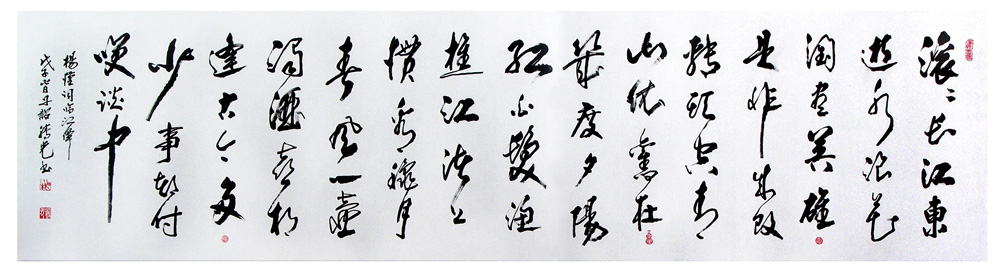 滚〻长江東
逝水浪花
淘尽英雄
是非成败
转頭空青
山依舊在
幾度夕陽
红白髮渔
樵江渚上
惯看秋月
春風一壶
濁酒喜相
逢古今多
少事都付
笑談中
楊慎词临江仙
戊子 书